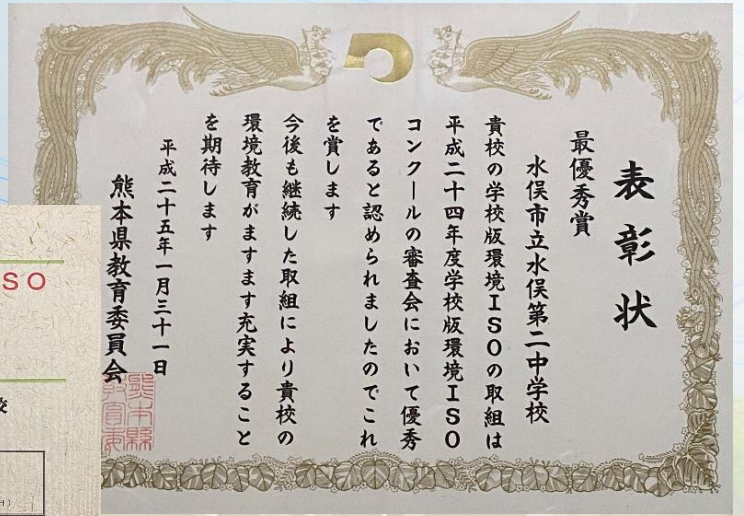 表彰状
最優秀賞
水俣市立水俣第二中学校
貴校の学校版環境ISOの取組は
平成二十四年度学校版環境ISO
コンクールの審査会において優秀
であると認められましたのでこれ
を賞します
今後も継続した取組により貴校の
環境教育がますます充実すること
を期待します
平成二十五年一月三十一日
熊本県教育委員会
SO
校